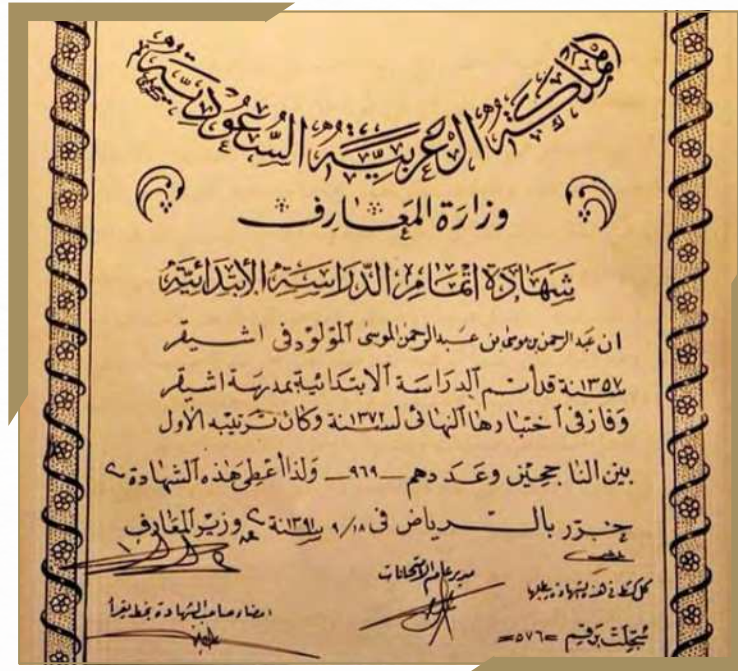 المملكة العربية السعودية
وزارة المعارف
شهادة اتمام الدراسة الابتدائية
ان عبد الرحمن بن موسى بن عبد الرحمن الموسى المولود فى اشيقر
سنة ١٣٥٧ قد أتم الدراسة الابتدائية بمدرسة اشيقر
وفاز فى اختبارها النهائى لسنة ١٣٧٢ وكان ترتيبه الأول
بين الناجحين وعددهم ـ ٩٦٩ ـ ولذا أعطى هذه الشهادة
حرر بالرياض فى ٩/١٨ سنة ١٣٩١ وزير المعارف
مدير عام الامتحانات
كل كشط فى هذه الشهادة يبطلها
امضاء صاحب الشهادة بخط يقرأ
سجلت برقم = ٥٧٦ =